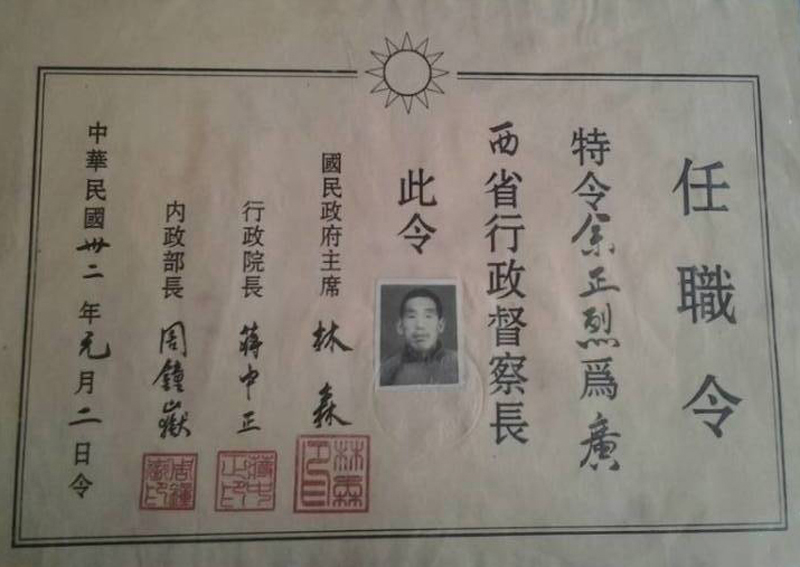 任職令
特令余正烈爲廣
西省行政督察長
此令
國民政府主席 林森
行政院長 蔣中正
内政部長 周鐘嶽
中華民國卅二年元月二日令
林森
蔣中正
周鐘